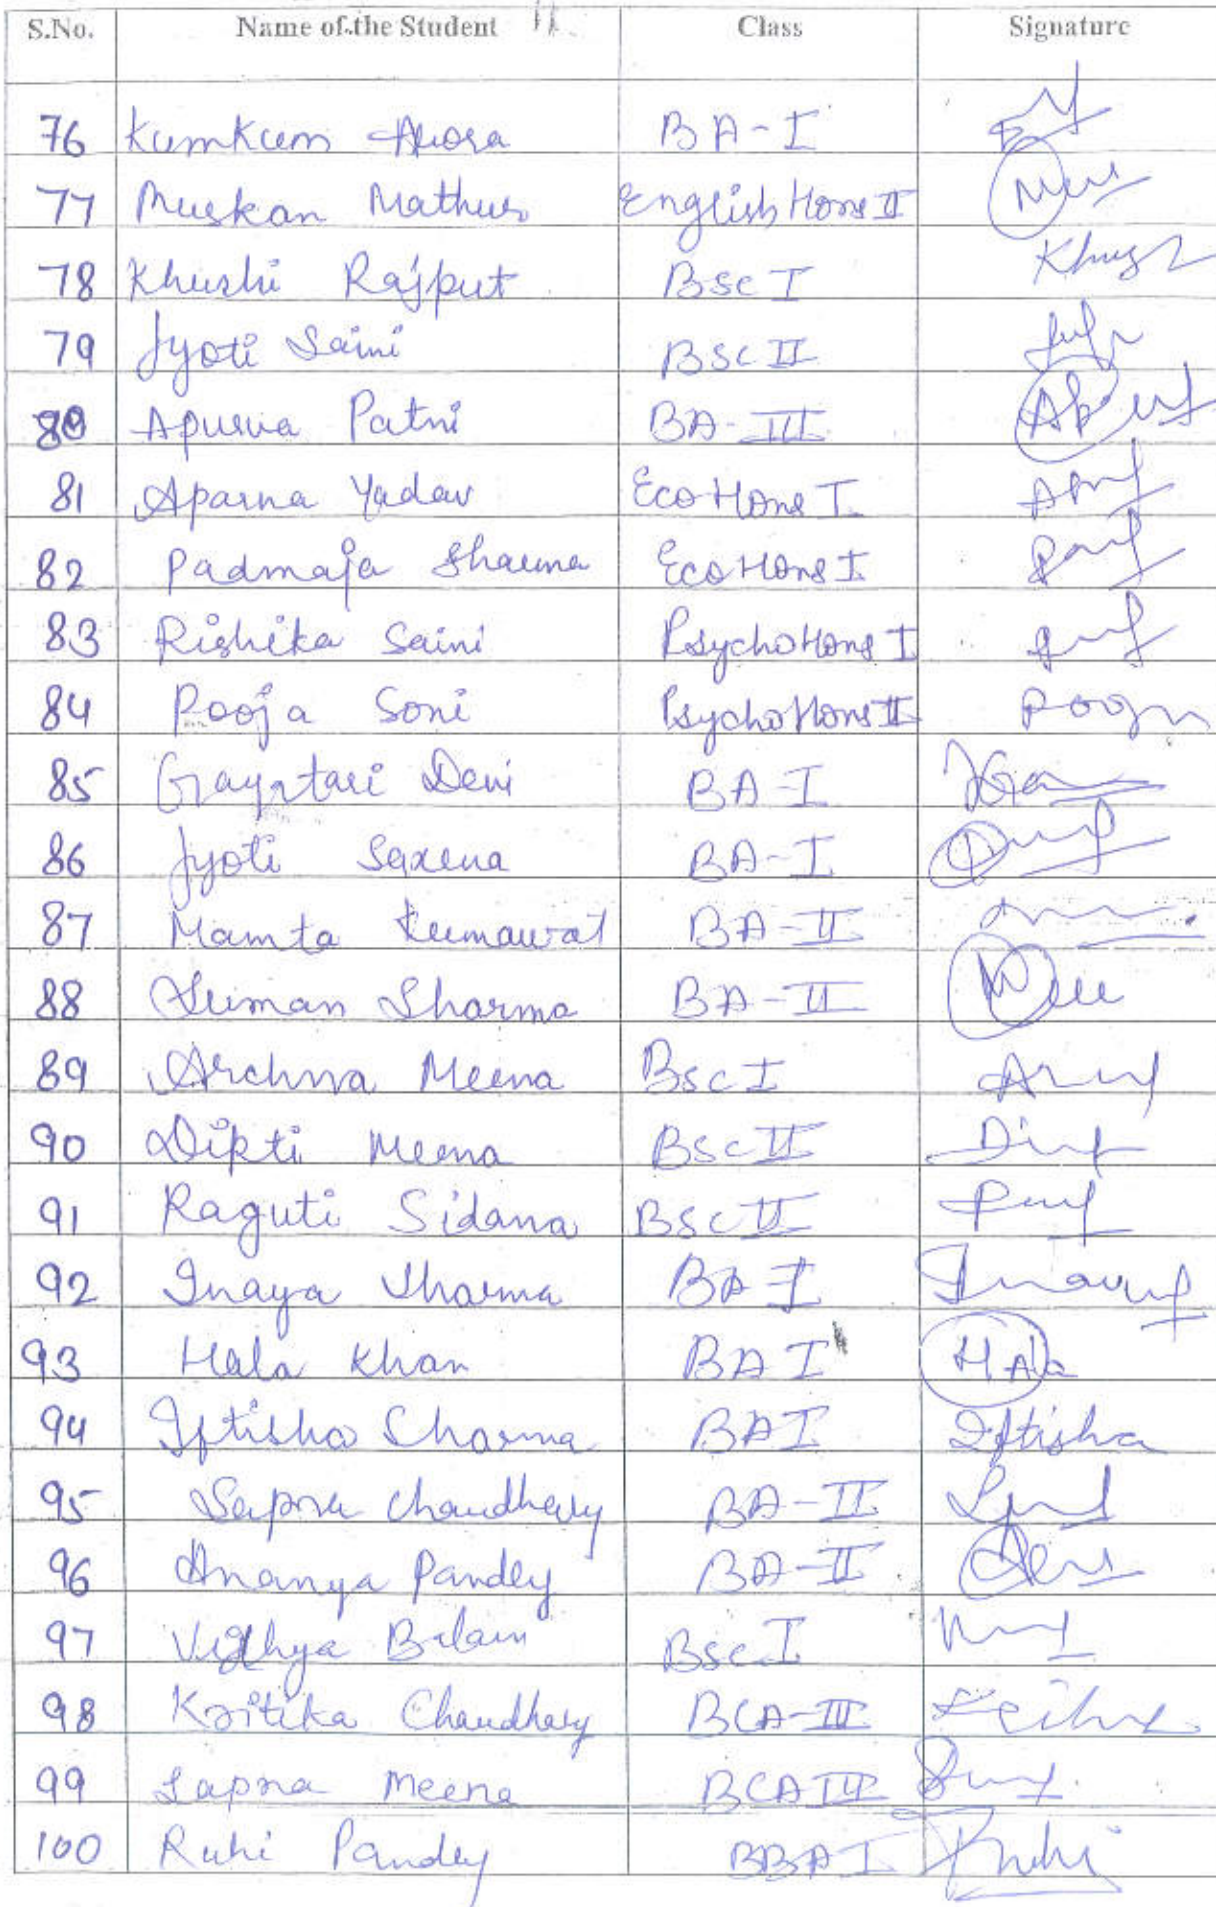 S.No. Name of the Student Class Signature
76 Kumkum Arora BA-I
77 Muskan Mathur English Hons II
78 Khushi Rajput BSC I Khush
79 Jyoti Saini BSC II
80 Apurva Patni BA-III
81 Aparna Yadav Eco Hons I
82 Padmaja Sharma Eco Hons I
83 Rishika Saini Psycho Hons I
84 Pooja Soni Psycho Hons II Pooja
85 Gayatari Devi BA-I
86 Jyoti Saxena BA-I
87 Mamta Kumawat BA-II
88 Suman Sharma BA-II
89 Archna Meena BSC I
90 Dipti Meena BSC II
91 Raguti Sidana BSC II
92 Inaya Sharma BA I
93 Hala Khan BA I Hala
94 Iftisha Sharma BA I Iftisha
95 Sapna Chaudhary BA-II
96 Ananya Pandey BA-II
97 Vidhya Balain BSC I
98 Kritika Chaudhary BCA-III
99 Sapna Meena BCA III
100 Ruhi Pandey BBA I Ruhi